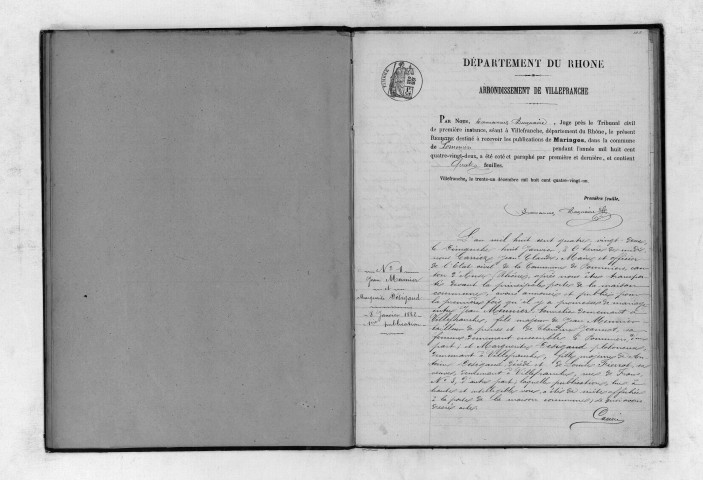 DÉPARTEMENT DU RHONE
ARRONDISSEMENT DE VILLEFRANCHE
PAR NOUS, Juge près le Tribunal civil
de première instance, séant à Villefranche, département du Rhône, le présent
REGISTRE destiné à recevoir les publications de Mariages, dans la commune
de Pommiers pendant l'année mil huit cent
quatre-vingt-deux, a été coté et paraphé par première et dernière, et contient
Quatre feuilles.
Villefranche, le trente-un décembre mil huit cent quatre-vingt-un.
Première feuille,
N° 1
Jean Meunier
et
Marguerite Desigaud
8 Janvier 1882
1ère publication
L'an mil huit cent quatre-vingt-deux
le Dimanche huit Janvier, à l'heure de midi
nous Carrier Jean Claude Maire et officier
de l'Etat civil de la Commune de Pommiers can-
ton d'Anse, Rhône, après nous être transporté
devant la principale porte de la maison
commune, avons annoncé et publié pour
la première fois qu'il y a promesse de mariage
entre Jean Meunier demeurant à
Villefranche, fils majeur de Jean Meunier
tailleur de pierres et de Claudine Jeannet, sa
femme demeurant ensemble à Pommiers d'une
part; et Marguerite Desigaud
demeurant à Villefranche, fille majeure de An-
toine Desigaud décédé et de
veuve, demeurant à Villefranche, rue de
N° 3, d'autre part, laquelle publication, lue à
haute et intelligible voix, a été de suite affichée
à la porte de la maison commune, de quoi avons
dressé acte.
Carrier